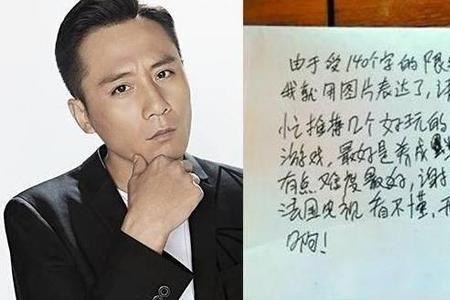 由于受140个字的限
我就用图片表达了,请
忙推荐几个好玩的
游戏,最好是养成
有点难度最好,谢
法国电视看不懂,
啊!